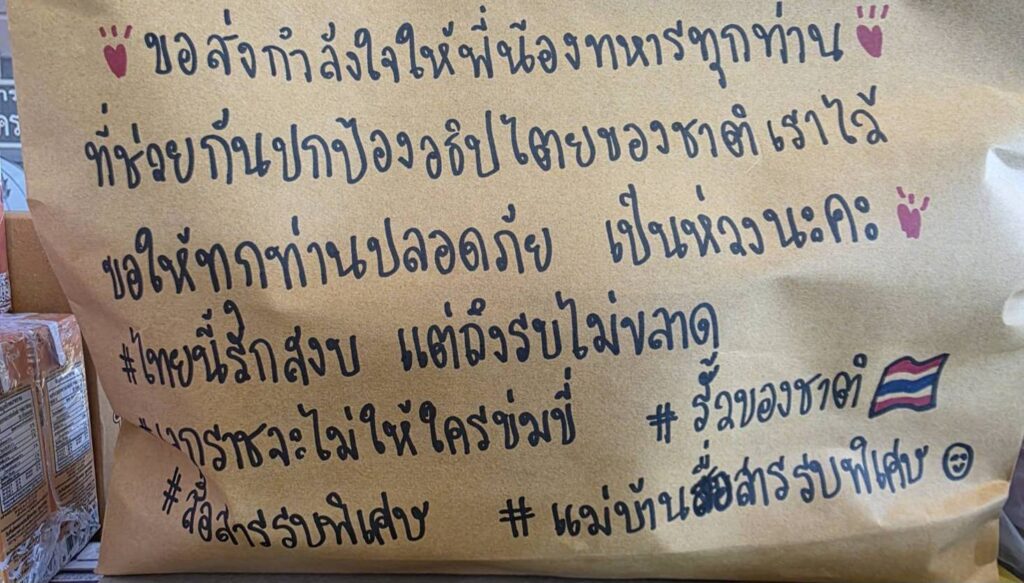 ขอส่งกำลังใจให้พี่น้องทหารทุกท่าน
ที่ช่วยกันปกป้องอธิปไตยของชาติเราไว้
ขอให้ทุกท่านปลอดภัย เป็นห่วงนะคะ
#ไทยนี้รักสงบ แต่ถึงรบไม่ขลาด
#เอกราชจะไม่ให้ใครข่มขี่ #รั้วของชาติ
#สื่อสารรบพิเศษ #แม่บ้านสื่อสารรบพิเศษ